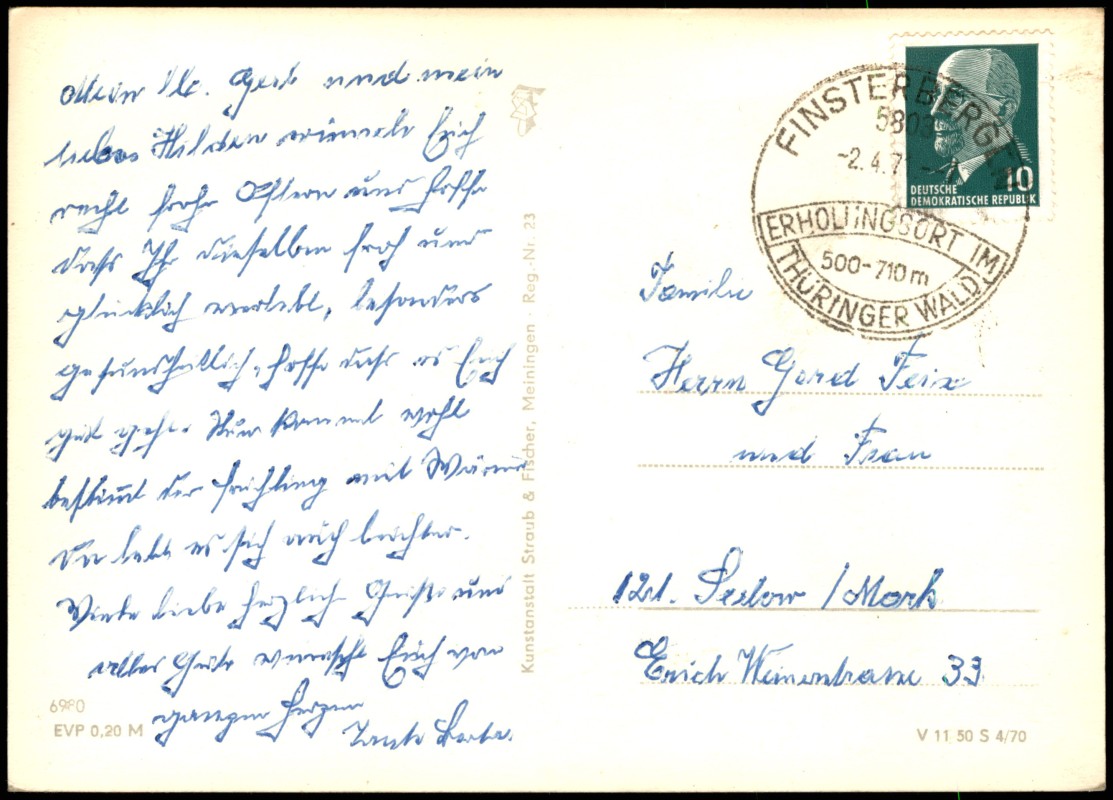 Mein lb. Gerd und mein
liebes Hilchen wünsche Euch
recht frohe Ostern und hoffe
dass Ihr dieselben froh und
glücklich verlebt, besonders
gesundheitlich, hoffe dass es Euch
gut geht. Nun kommt wohl
bestimmt der Frühling mit Wärme
Da lebt es sich auch leichter.
Viele liebe herzliche Grüße und
alles Gute wünscht Euch von
ganzen Herzen
Tante Berta.
6980
EVP 0,20 M
Kunstanstalt Straub & Fischer, Meiningen · Reg.-Nr. 23
FINSTERBERGEN
5803
-2.4.71-
ERHOLUNGSORT IM
500-710 m
THÜRINGER WALD
10
DEUTSCHE
DEMOKRATISCHE REPUBLIK
Familie
Herrn Gerd Feix
und Frau
121. Seelow /Mark
Erich Weinertstrasse 33
V 11 50 S 4/70